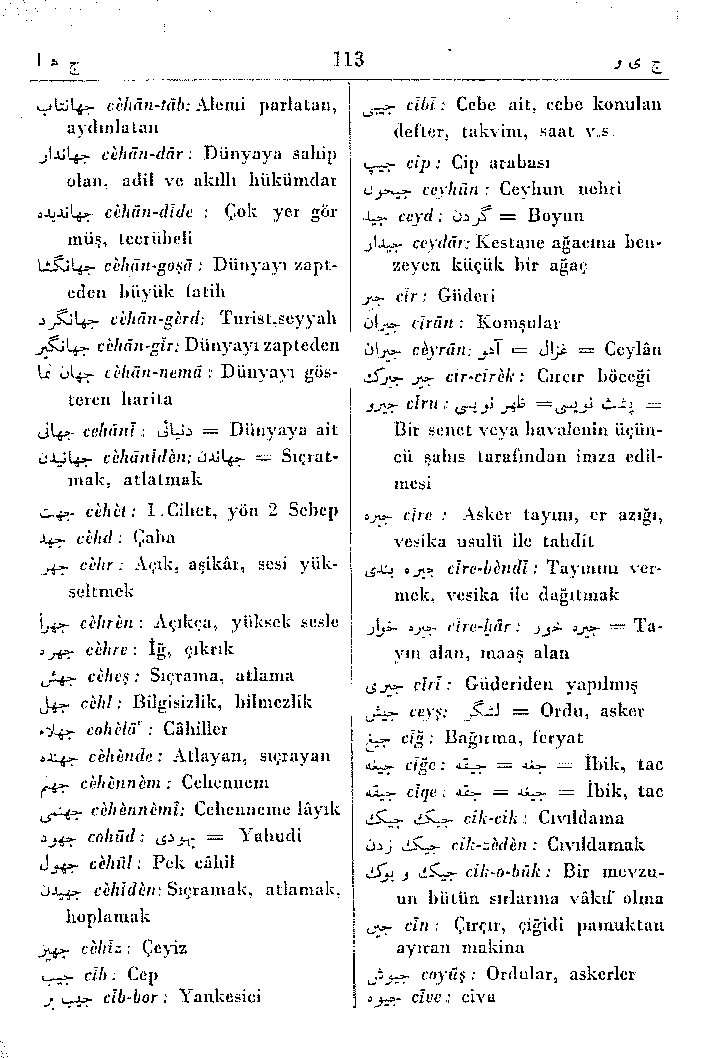 ج ه ا
113
ج ى و
جهانتاب cèhān-tāb: Alemi parlatan,
aydınlatan
جهاندار cèhān-dār : Dünyaya sahip
olan, adil ve akıllı hükümdar
جهاندیده cèhān-dīde : Çok yer gör
müş, tecrübeli
جهانگشا cèhān-goşā : Dünyayı zapt-
eden büyük fatih
جهانگرد cèhān-gèrd: Turist,seyyah
جهانگیر cèhān-gīr: Dünyayı zapteden
جهان نما cèhān-nemā : Dünyayı gös-
teren harita
جهانی cehānī : دنیائی = Dünyaya ait
جهانیدن cèhānīdèn: جهاندن = Sıçrat-
mak, atlatmak
جهت cèhèt : 1.Cihet, yön 2 Sebep
جهد cèhd : Çaba
جهر cèhr : Açık, aşikâr, sesi yük-
seltmek
جهراً cèhrèn : Açıkça, yüksek sesle
جهره cèhre : İğ, çıkrık
جهش cèheş : Sıçrama, atlama
جهل cèhl : Bilgisizlik, bilmezlik
جهلاء cohèlā' : Câhiller
جهنده cèhènde : Atlayan, sıçrayan
جهنم cèhènnèm : Cehennem
جهنمی cèhènnèmī: Cehenneme lâyık
جهود cohūd : یهودی = Yahudi
جهول cèhūl : Pek câhil
جهیدن cèhīdèn: Sıçramak, atlamak,
hoplamak
جهیز cèhīz : Çeyiz
جیب cīb : Cep
جیب بر cīb-bor : Yankesici
جیبی cībī : Cebe ait, cebe konulan
defter, takvim, saat v.s.
جیپ cip : Cip arabası
جیحون ceyhūn : Ceyhun nehri
جید ceyd : گردن = Boyun
جیدار ceydār: Kestane ağacına ben-
zeyen küçük bir ağaç
جیر cīr : Güderi
جیران cīrān : Komşular
جیران cèyrān: آهو = غزال = Ceylân
جیر جیرک cir-cirèk : Cırcır böceği
جیرو cīru : ظهر نویسی = پشت نویسی =
Bir senet veya havalenin üçün-
cü şahıs tarafından imza edil-
mesi
جیره cīre : Asker tayını, er azığı,
vesika usulü ile tahdit
جیره بندی cīre-bèndī : Tayının ver-
mek, vesika ile dağıtmak
جیره خوار cīre-ḫār : جیره خور = Ta-
yın alan, maaş alan
جیری cīrī : Güderiden yapılmış
جیش ceyş: لشگر = Ordu, asker
جیغ cīğ : Bağırma, feryat
جیغه cīğe : جغه = جیقه = İbik, tac
جیقه cīqe : جغه = جیغه = جقه = İbik, tac
جیک جیک cik-cik : Cıvıldama
جیک زدن cik-zèdèn : Cıvıldamak
جیک و بوک cīk-o-būk : Bir mevzu-
un bütün sırlarına vâkıf olma
جین cīn : Çırçır, çiğidi pamuktan
ayıran makina
جیوش coyūş : Ordular, askerler
جیوه cīve : civa